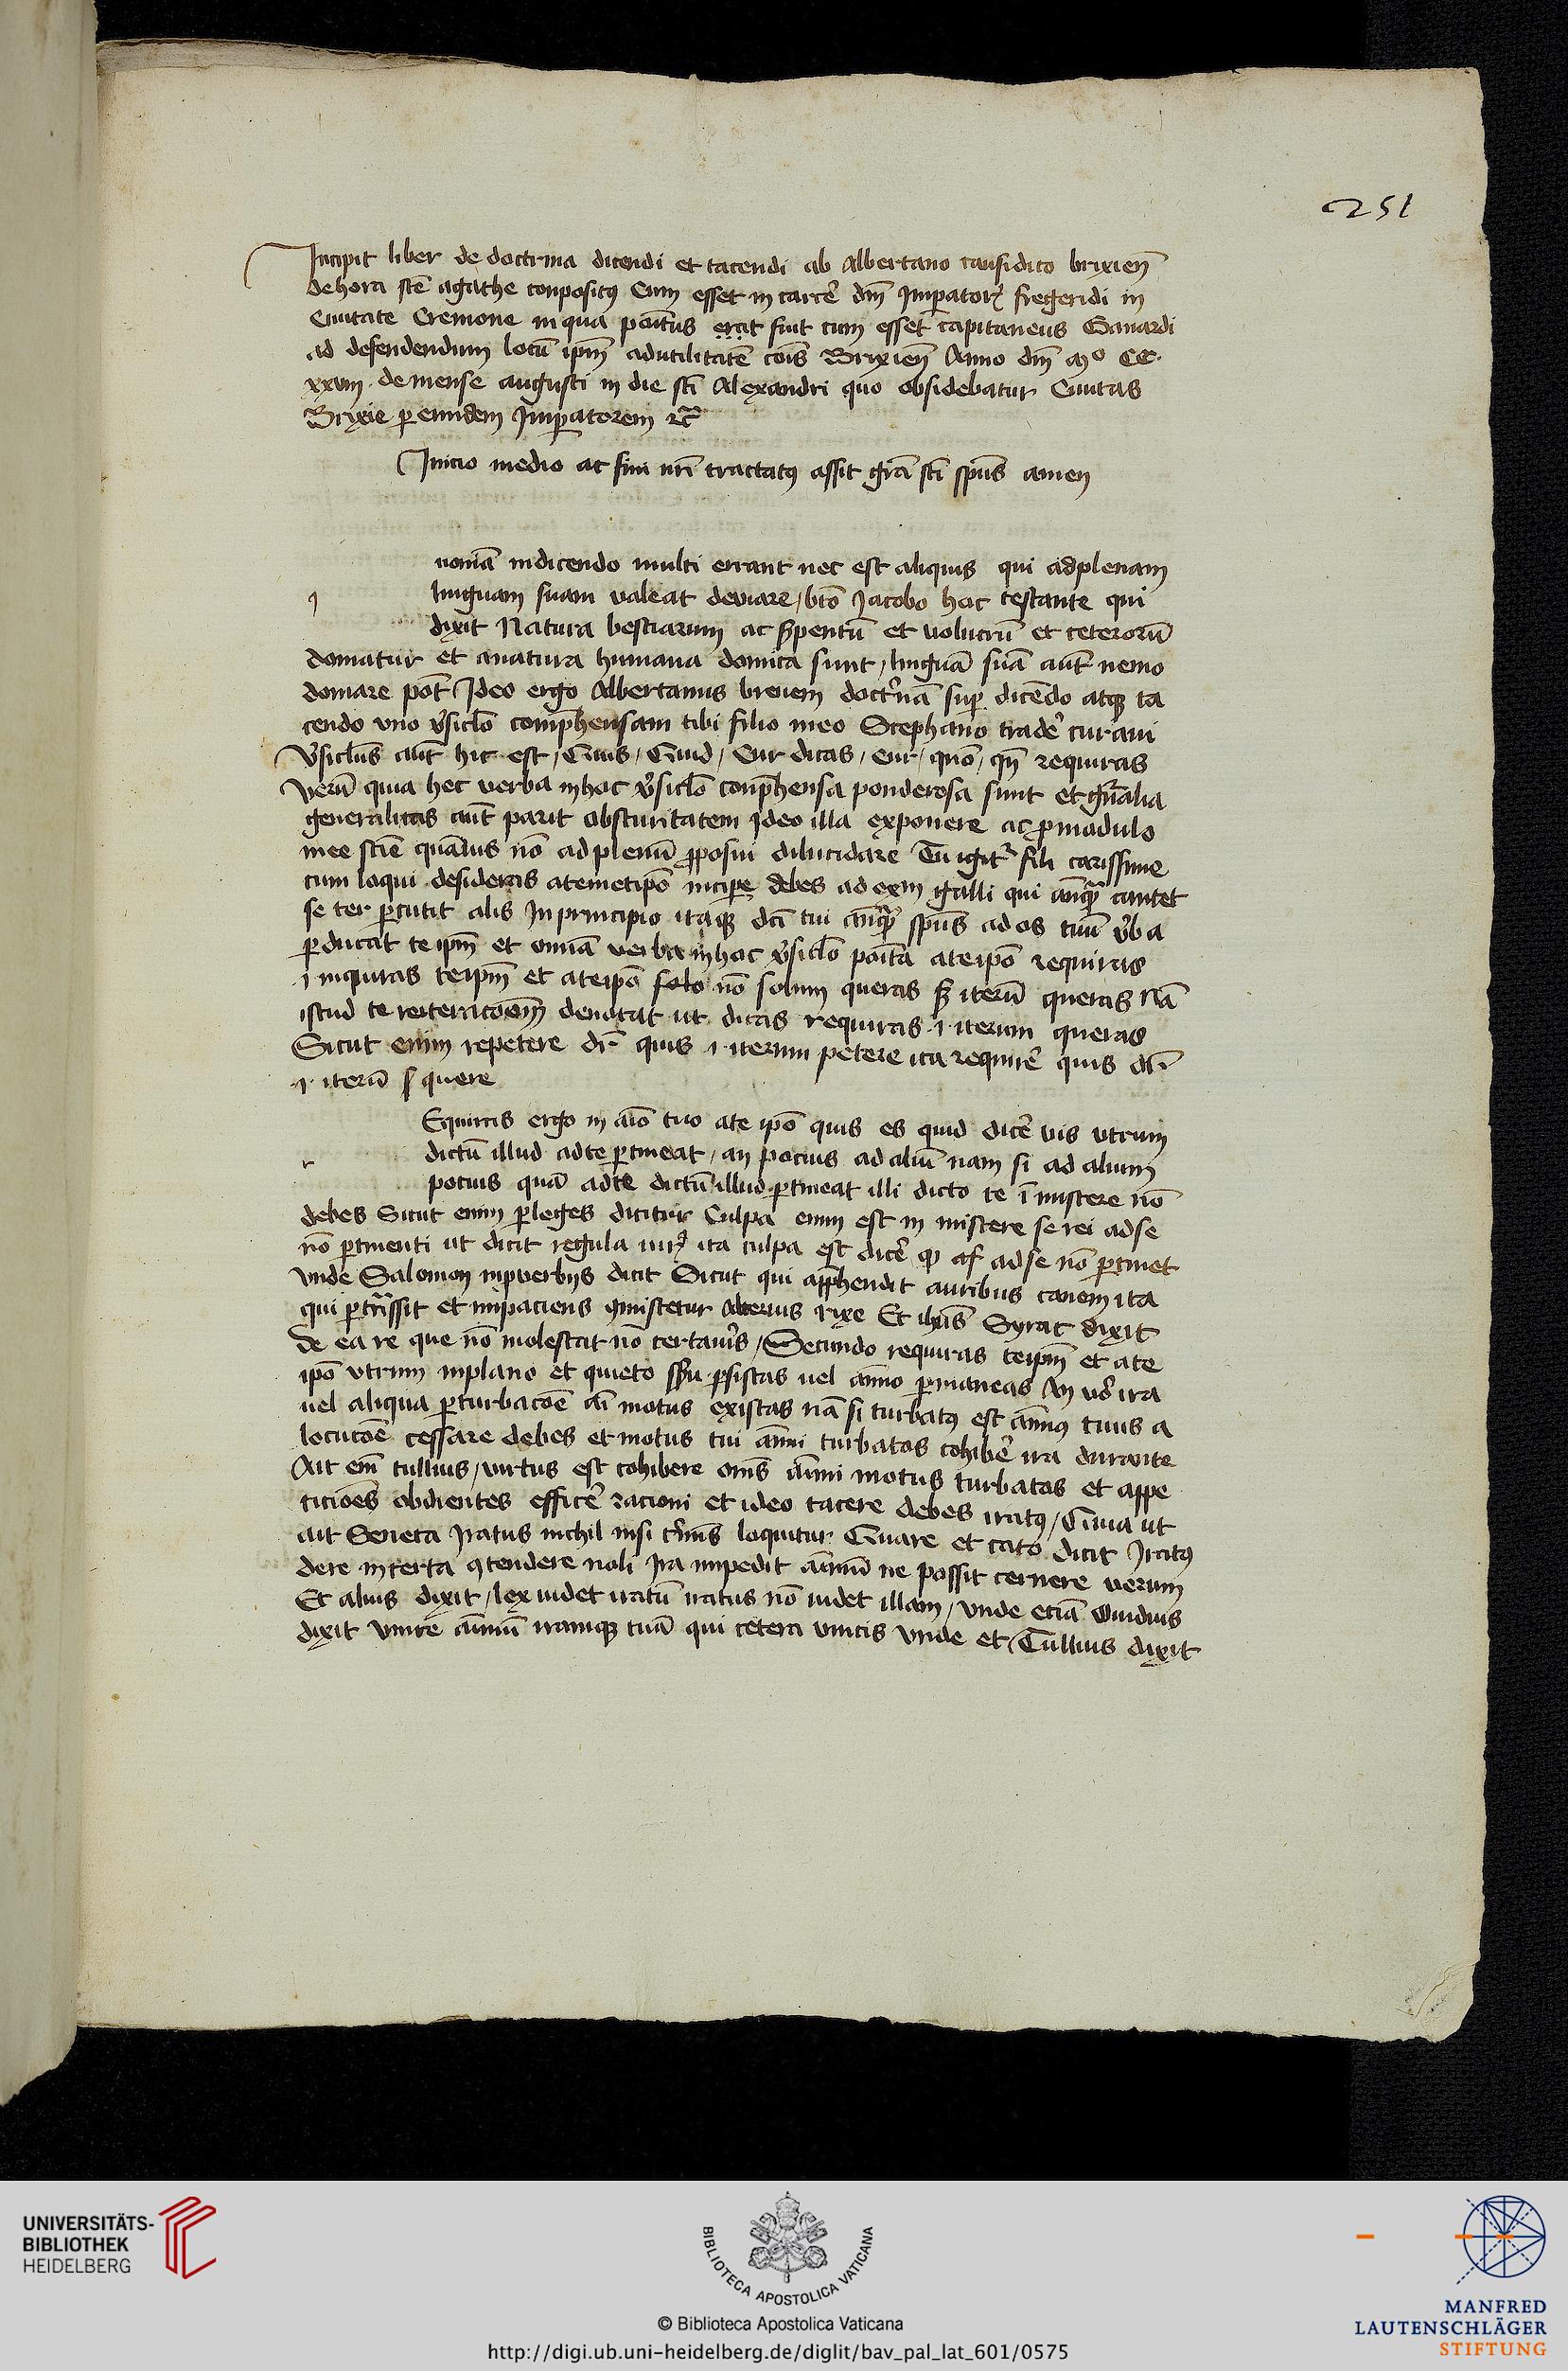 251
Incipit liber de doctrina dicendi et tacendi ab Albertano causidico brixien̄
de hora stē agathe conpositus Cum esset in carcer̄ dm̄ Imperatoꝝ fregeridi in
Ciuitate Cremone in qua poitus erat fuit cum esset capitaneus Gauardi
ad defendendum locū ipm̄ ad utilitatē cois̄ Brixien̄ Anno dm̄ mº CC.
de mense augusti in die sti Alexandri quo obsidebatur Ciuitas
Brixie ꝑ eundem Imperatorem
Inicio medio ac fini nr̄i tractatꝰ assit grā stī spūs amen
nonīā in dicendo multi errant nec est aliquis qui ad plenam
i linguam suam valeat domare / btō Jacobo hoc testante qui
dixit Natura bestiarum ac ẜpentū et volucrū et ceterorū
domatur et a natura humana domita sunt / linguā suā aūt nemo
domare pōt Ideo ergo Albertanus breuem doctⁱnā suꝑ dicēdo atqꝫ ta
cendo vno v̄siclō compr̄hensam tibi filio meo Stephano tradē curaui
v̄siclūs aūt hic est / Quis / Quid / Cui dicas / cur / quō / qn̄ requiras
verū quia hec verba in hoc v̄siclō conpr̄hensa ponderosa sunt et gn̄alia
generalitas aūt parit obscuritatem Ideo illa exponere ac ꝓ modulo
mee sciē quāuis nō ad plenū ꝓposui dilucidare Tu igitᵘr fili carissime
cum loqui desideras a temetipō incipe debes ad exm̄ galli qui anqᵃꝫ cantet
se ter ꝑcutit alis In principio itaqꝫ dc̄i tui anqᵃꝫ spūs ad os tuū v̄ba
ꝑducat te ipm̄ et omīa verba in hoc v̄siclō poita a te ipō requiras
.i. inquiras teipm̄ et a teipō solo nō solum queras sꝫ iterū queras Nā
istud re reiteracōem̄ denotat ut dicas requiras .i. iterum queras
Sicut enim repetere dr̄ quis .i. iterum petere ita requirē quis dr̄
.i. iterū querere
r Equiras ergo in aīo tuo a te ipō quis es quid dicē vis vtrum
dictū illud ad te ꝑtineat / an pocius ad aliū nam si ad alium
pocius quā ad te dictū illud ꝑtineat illi dicto te īmistere nō
debes Sicut enim ꝑ leges dicitur Culpa enim est inmistere se rei ad se
nō ꝑtinenti ut dicit regula iurꝭ ita culpa est dicē qꝫ ad se nō ꝑtinet
vnde Salomon in ꝓuerbijs dicit Sicut qui appr̄hendit auribus canem ita
qui ꝑtrāssit et impaciens ꝯmiscetur alterius rixe Et ihūs Syrac dixit
de ea re que nō molestat nō certauīs / Secundo requiras teipm̄ et a te
ipō vtrum in plano et quieto sp̄u ꝑsistas uel aīmo ꝑmaneas An v̄o ira
uel aliqua ꝑturbacōe aī motus existas nā si turbatꝰ est aīmꝰ tuus a
locucōe cessare debes et motus tui aīmi turbatos cohibē ira durante
Ait em̄ tullius / virtus est cohibere om̄s aīmi motus turbatos et appe
ticiōes obdientes efficē racioni et ideo tacere debes iratꝰ / Quia ut
ait Seneca Iratus nichil nisi cⁱmīs loquitur Quare et cato dicit Iratꝰ
dere incerta ꝯtendere noli Ira impedit aīmū ne possit cernere verum
Et alius dixit / lex uidet iratū iratus nō uidet illam / vnde eciā Ouidius
dixit vince aīmū iramqꝫ tuā qui cetera vincis vnde et Tullius dixit
UNIVERSITÄTS-
BIBLIOTHEK
HEIDELBERG
BIBLIOTECA APOSTOLICA VATICANA
© Biblioteca Apostolica Vaticana
http://digi.ub.uni-heidelberg.de/diglit/bav_pal_lat_601/0575
MANFRED
LAUTENSCHLÄGER
STIFTUNG